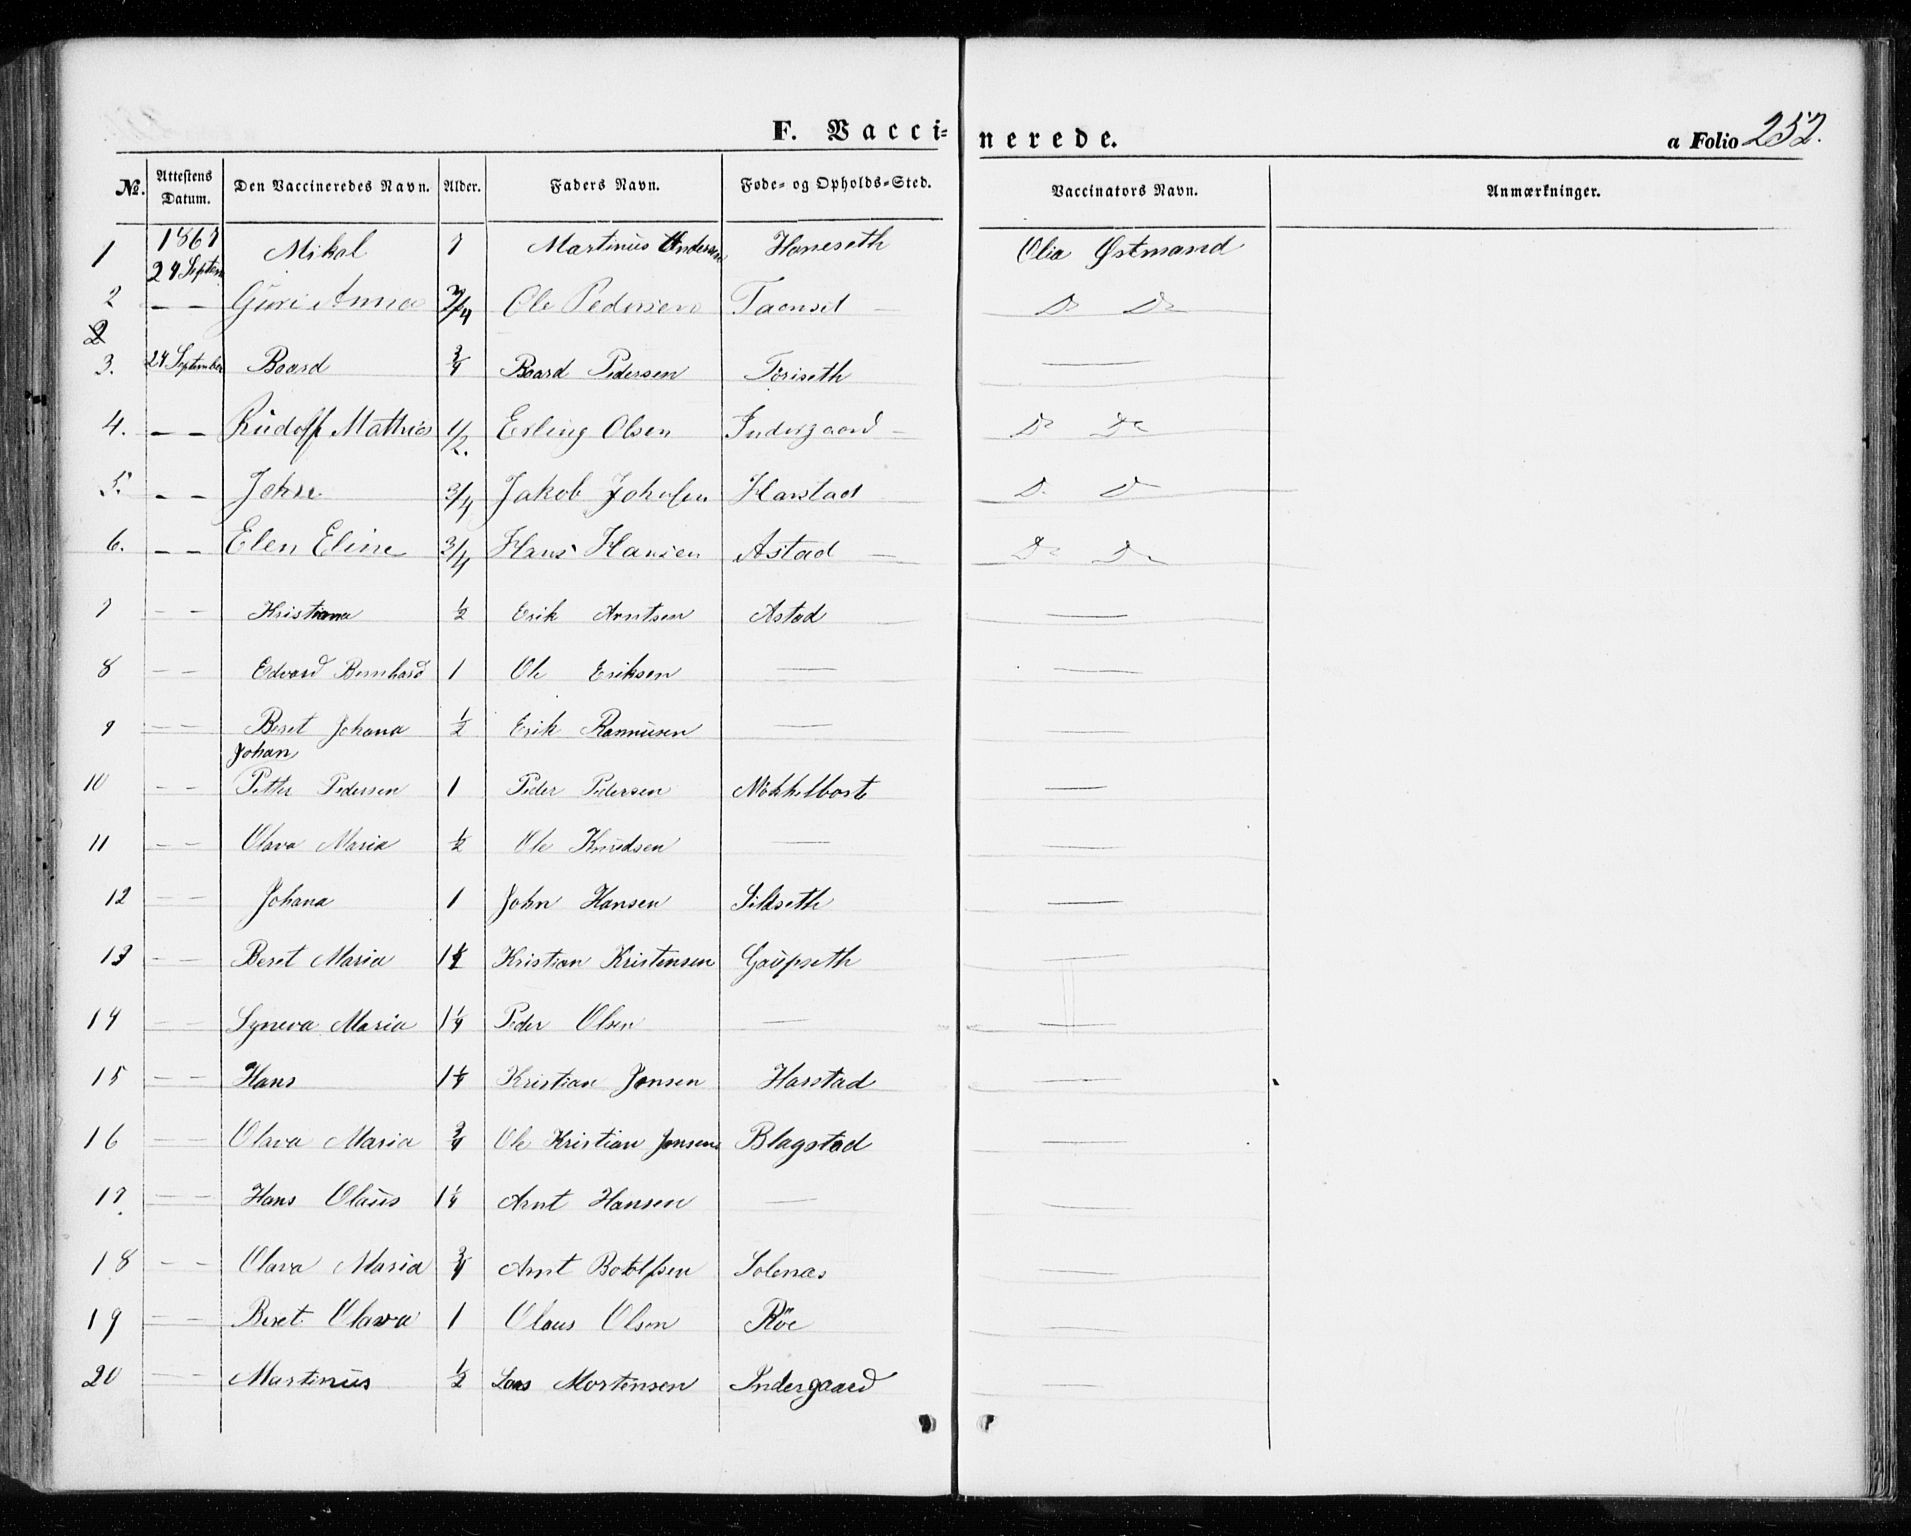 F. Vacci-nerede. a Folio 252.
No. Attestens Datum. Den Vaccineredes Navn. Alder. Faders Navn. Føde- og Opholds-Sted. Vaccinators Navn. Anmærkninger.
1 1867 24 Septem Mikal 7 Martinus Andersen Haneseth Olia Østmand
2 — — Guri Anna 3/4 Ole Pedersen — Do Do
3. 24 September Baard 3/4 Baard Pedersen Töriseth —
4. — — Rudolf Mathias 1/2. Erling Olsen Indergaard — Do Do
5. — — Johan 3/4 Jakob Harstad D. D
6. — — Elen Eline 3/4 Hans Hansen Astad — Do Do
7 — — Kristiana 1/2 Erik Arntsen Astad —
8 — — Edvard Bernhard 1 Ole Eriksen — —
9 — — Beret Johana 1/2 Erik Rasmusen — —
Johan
10 — — Petter Pedersen 1 Peder Pedersen Nökkelbost —
11 — — Olava Maria 1/2 Ole Knudsen — —
12 — — Johana 1 John Hansen Sildseth —
13 — — Beret Maria 1 1/4 Kristian Kristensen Gaupseth —
14 — — Syneva Maria 1 1/4 Peder Olsen — —
15 — — Hans 1 1/4 Kristian Jonsen Harstad —
16 — — Olava Maria 3/4 Ole Kristian Jonsen Blagstad —
17. — — Hans Olaus 1 1/4 Arnt Hansen — —
18 — — Olava Maria 3/4 Arnt Botolfsen Solenas —
19 — — Beret Olava 1 Olaus Olsen Röe —
20 — — Martinus 1/2 Lars Mortensen Indergaard —